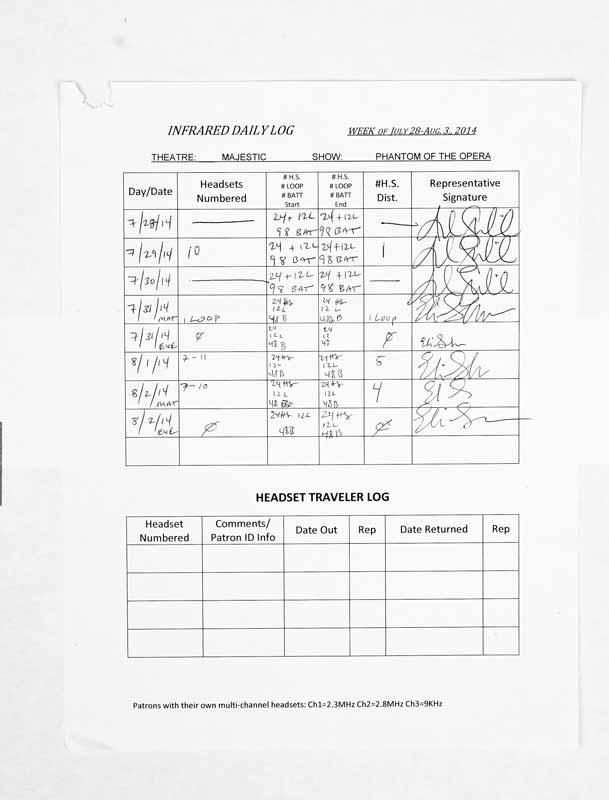 INFRARED DAILY LOG WEEK OF JULY 28-AUG. 3, 2014
THEATRE: MAJESTIC SHOW: PHANTOM OF THE OPERA
Day/Date Headsets Numbered # H.S. # LOOP # BATT Start # H.S. # LOOP # BATT End #H.S. Dist. Representative Signature
7/28/14 — 24 + 12L 98 BAT 24 + 12L 98 BAT —
7/29/14 10 24 + 12L 98 BAT 24 + 12L 98 BAT 1
7/30/14 — 24 + 12L 98 BAT 24 + 12L 98 BAT —
7/31/14 MAT 1 LOOP 24 HS 12 L 48 B 24 HS 12 L 48 B 1 LOOP Eli
7/31/14 EVE Ø 24 12L 48B 24 12 48 Ø Eli
8/1/14 7-11 24HS 12L 48B 24HS 12L 48B 5 Eli
8/2/14 MAT 7-10 24HS 12L 48 24HS 12L 48B 4 El S
8/2/14 EVE Ø 24HS 12L 48B 24HS 12L 48B Ø Eli
HEADSET TRAVELER LOG
Headset Numbered Comments/ Patron ID Info Date Out Rep Date Returned Rep
Patrons with their own multi-channel headsets: Ch1=2.3MHz Ch2=2.8MHz Ch3=9KHz